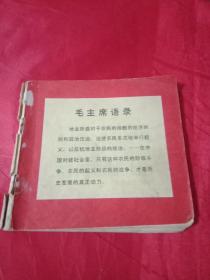 毛主席语录
地主阶级对于农民的残酷的经济剥
削和政治压迫，迫使农民多次地举行起
义，以反抗地主阶级的统治。……在中
国封建社会里，只有这种农民的阶级斗
争、农民的起义和农民的战争，才是历
史发展的真正动力。